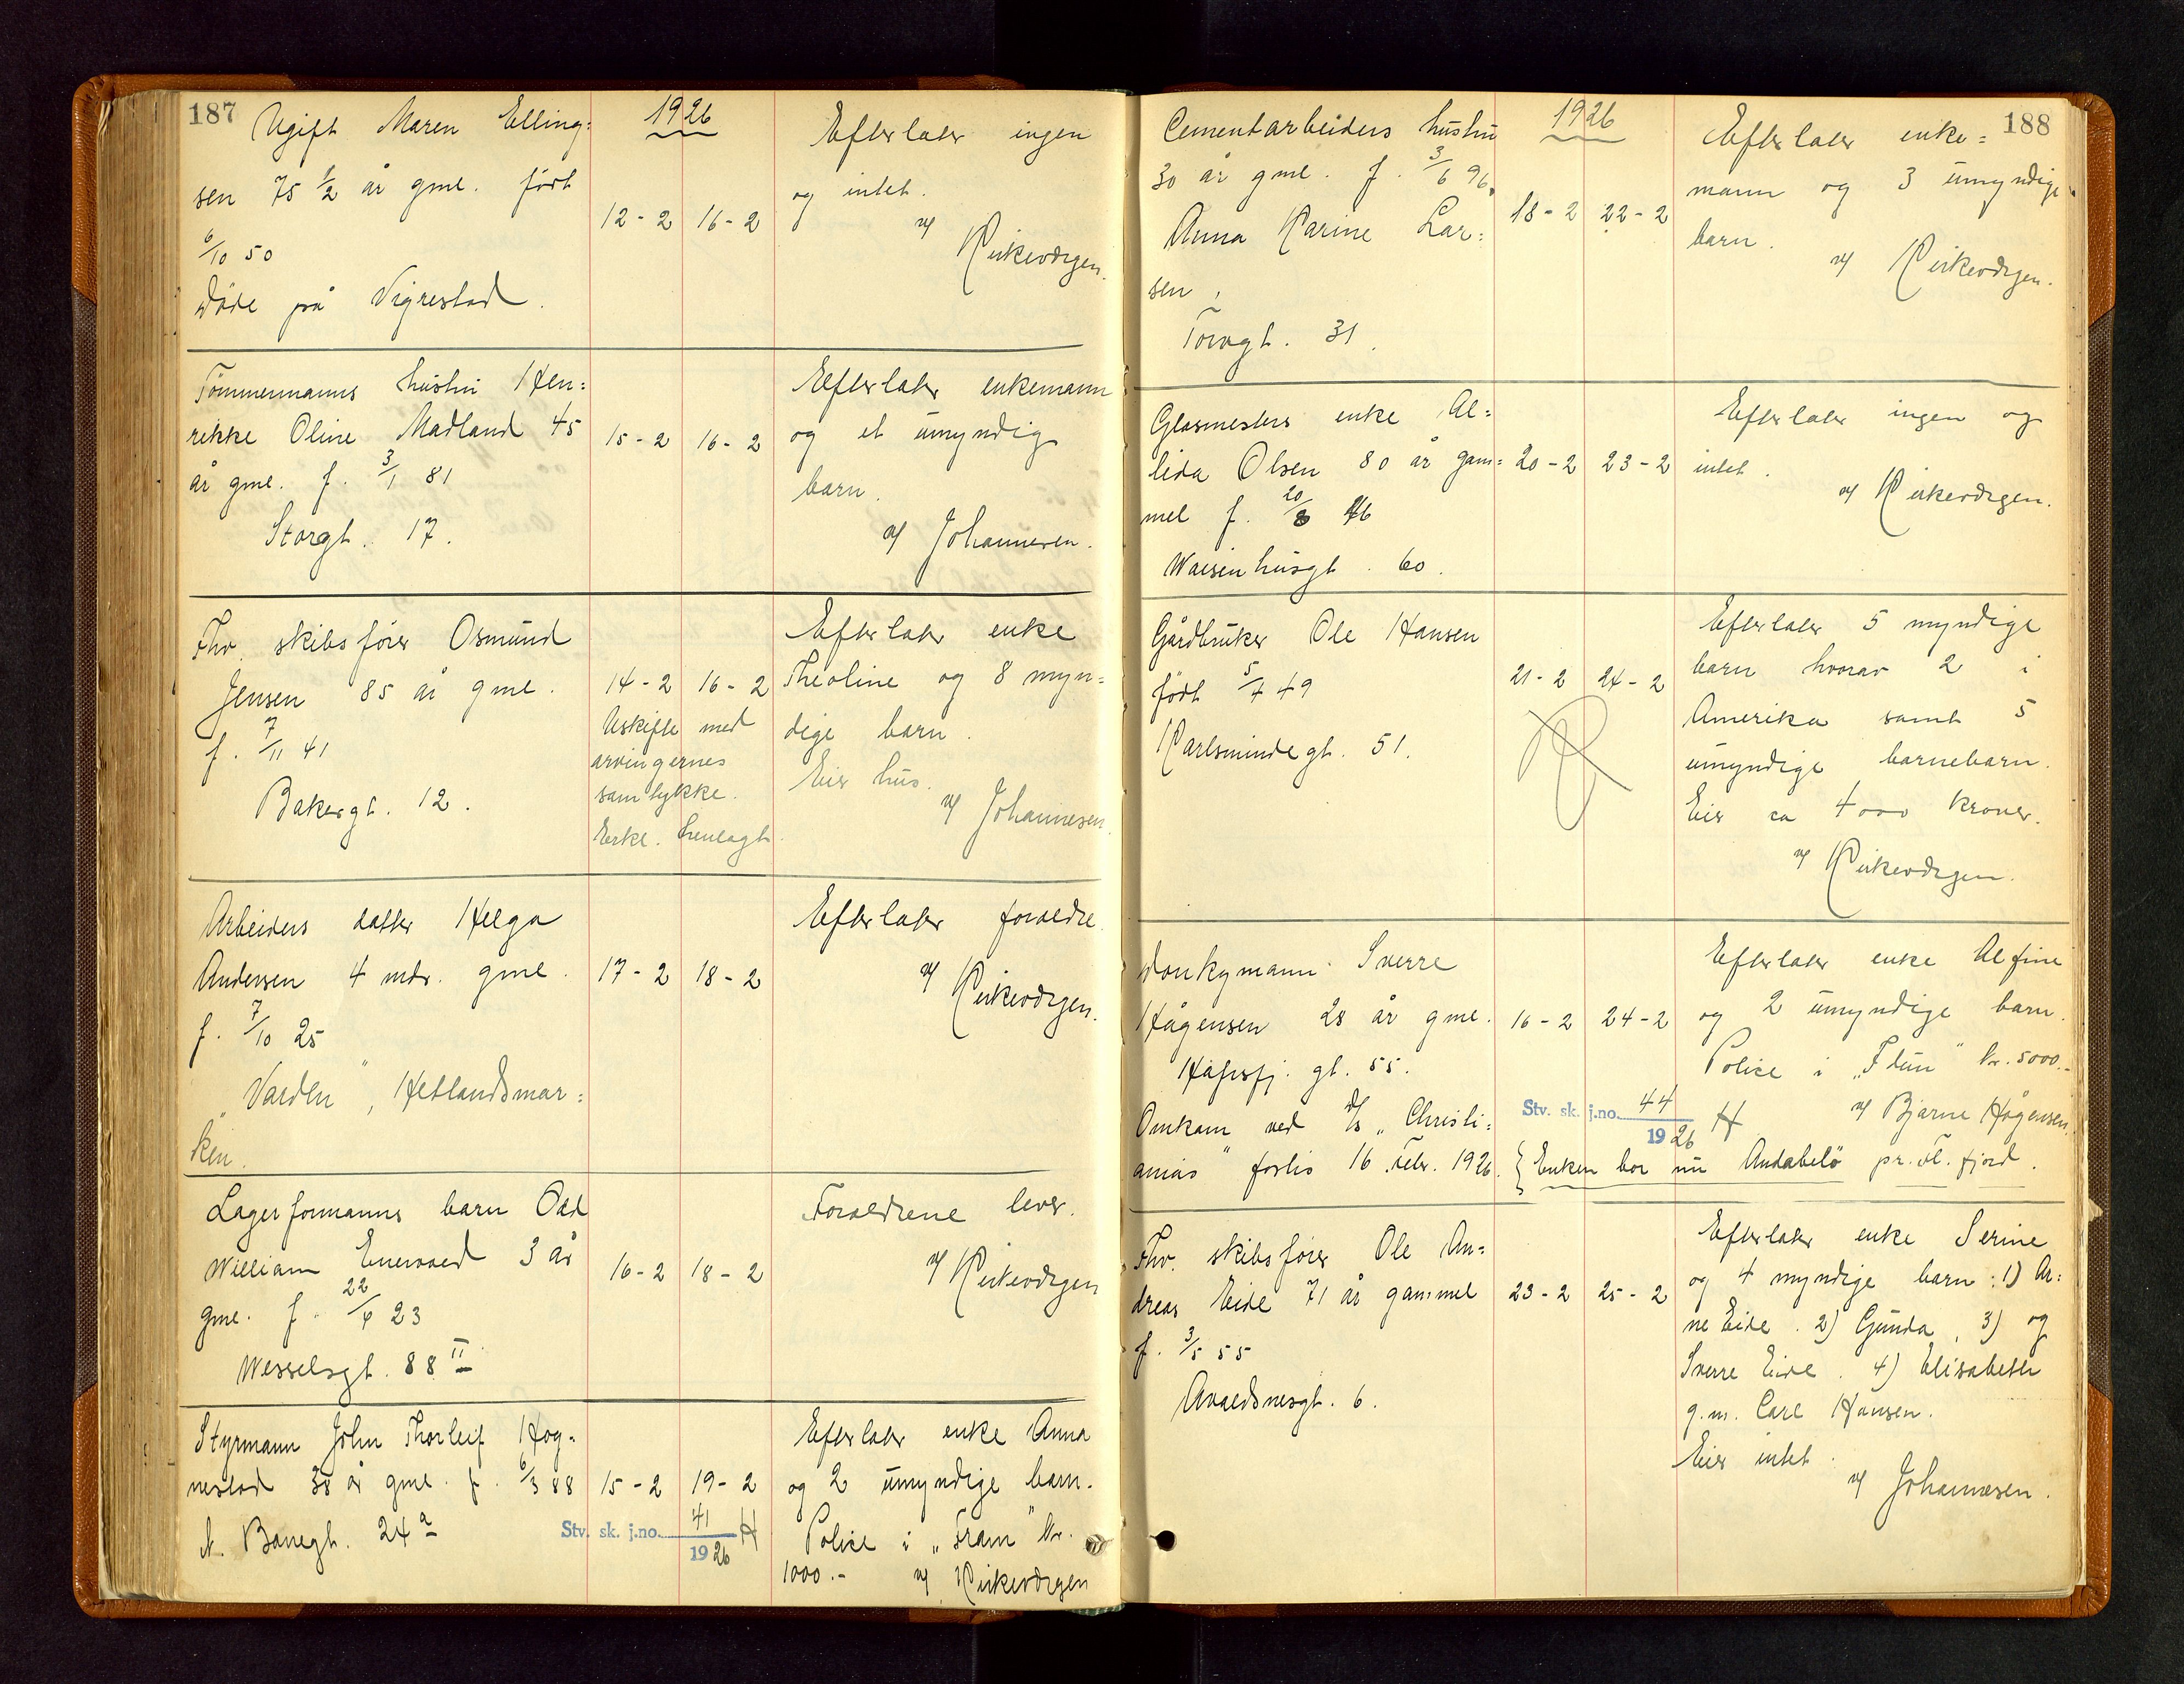 187
Ugift Maren Elling=
sen 75 1/2 år gml. født
6/10 50
Døde på Vigrestad.
1926
12-2 16-2
Efterlater ingen
og intet.
v/ Kirkevergen.
Tømmermanns hustru Hen=
rikke Oline Madland 45
år gml. f. 3/1 81
Storgt. 17.
15-2 16-2
Efterlater enkemann
og et umyndig
barn.
v/ Johannesen.
Fhv. skibsfører Osmund
Jensen 85 år gml.
f. 7/11 41
Bakergt. 12.
14-2 16-2
Uskifte med
arvingernes
samtykke.
Erkl. henlagt.
Efterlater enke
Theoline og 8 myn=
dige barn.
Eier hus.
v/ Johannesen.
Arbeiders datter Helga
Andersen 4 mdr. gml.
f. 7/10 25
"Varden", Hetlandsmar=
ken.
17-2 18-2
Efterlater forældre.
v/ Kirkevergen.
Lagerformanns barn Odd
William Enevold 3 år
gml. f. 22/9 23
Wesselsgt. 88 II
16-2 18-2
Forældrene lever.
v/ Kirkevergen
Styrmann John Thorleif Hog=
nestad 38 år gml. f. 6/3 88
N. Banegt. 24 a
15-2 19-2
Stv. sk. j.no. 41
1926 H
Efterlater enke Anna
og 2 umyndige barn.
Police i "Fram" kr.
1000.- v/ Kirkevergen
188
Cementarbeiders hustru
30 år gml. f. 3/6 96,
Anna Karine Lar=
sen,
Torvgt. 31.
1926
18-2 22-2
Efterlater enke=
mann og 3 umyndige
barn.
v/ Kirkevergen.
Glasmesters enke Al=
lida Olsen 80 år gam=
mel f. 20/8 46
Waisenhusgt. 60.
20-2 23-2
Efterlater ingen og
intet.
v/ Kirkevergen.
Gårdbruker Ole Hansen
født 5/4 49
Karlsmindegt. 51.
21-2 24-2
Efterlater 5 myndige
barn hvorav 2 i
Amerika samt 5
umyndige barnebarn.
Eier ca 4000 kroner.
v/ Kirkevergen.
Donkymann Sverre
Hågensen 28 år gml.
Hafrsfj. gt. 55.
Omkom ved d/s "Christi=
anias" forlis 16. Febr. 1926.
16-2 24-2
Stv. sk. j.no. 44
1926 H
Efterlater enke Alfine
og 2 umyndige barn.
Police i "Idun" kr. 5000.-
v/ Bjarne Hågensen.
{ Enken bor nu Andabelø pr. Fl. fjord.
Fhv. skibsfører Ole An=
dreas Eide 71 år gammel
f. 3/5 55
Avaldsnesgt. 6.
23-2 25-2
Efterlater enke Serine
og 4 myndige barn: 1) Ar=
ne Eide. 2) Gunda, 3) og
Sverre Eide. 4) Elisabeth
g.m. Carl Hansen.
Eier intet.
v/ Johannesen.